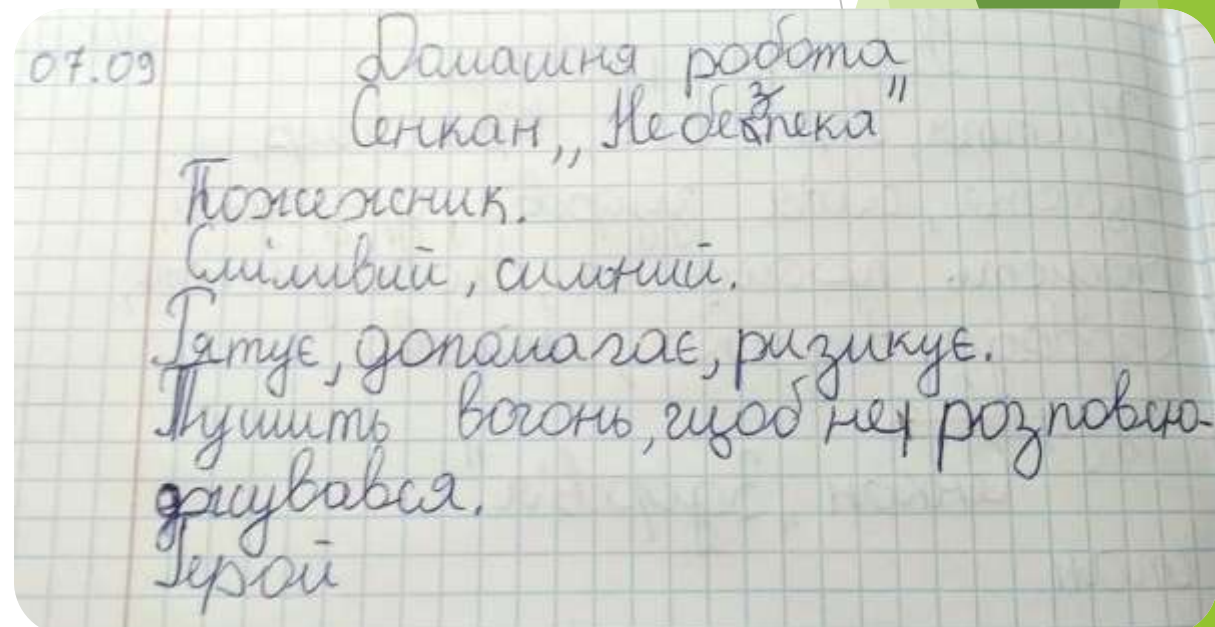 07.09 Домашня робота
Сенкан „Небезпека"
Пожежник.
Сміливий, силний.
Рятує, допомагає, ризикує.
Тушить вогонь, щоб не розповсю-
джувався.
Герой